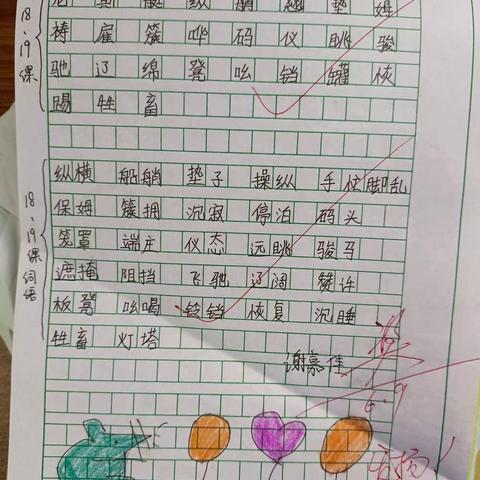 18、19课
尼 斯 艘 纵 艄 翘 垫 姆
祷 雇 簇 哗 码 仪 眺 骏
驰 辽 绵 凳 吆 铛 罐 恢
赐 牲 畜
18、19课词语
纵横 船艄 垫子 操纵 手忙脚乱
保姆 簇拥 沉寂 停泊 码头
笼罩 端庄 仪态 远眺 骏马
遮掩 阻挡 飞驰 辽阔 赞许
板凳 吆喝 铃铛 恢复 沉睡
牲畜 灯塔
谢嘉佳
6.9